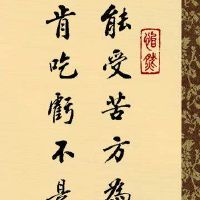 能受苦方為
肯吃虧不是